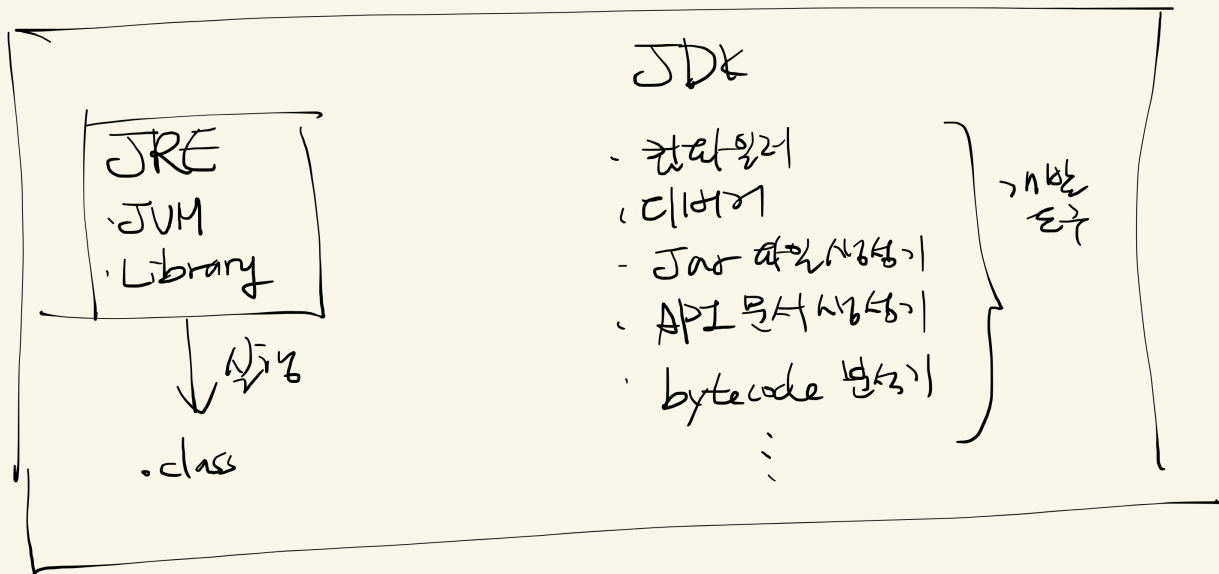 JDK
JRE
· JVM
· Library
실행
.class
· 컴파일러
· 디버거
- Jar 파일 생성기
· API 문서 생성기
· bytecode 분석기
⋮
개발
도구